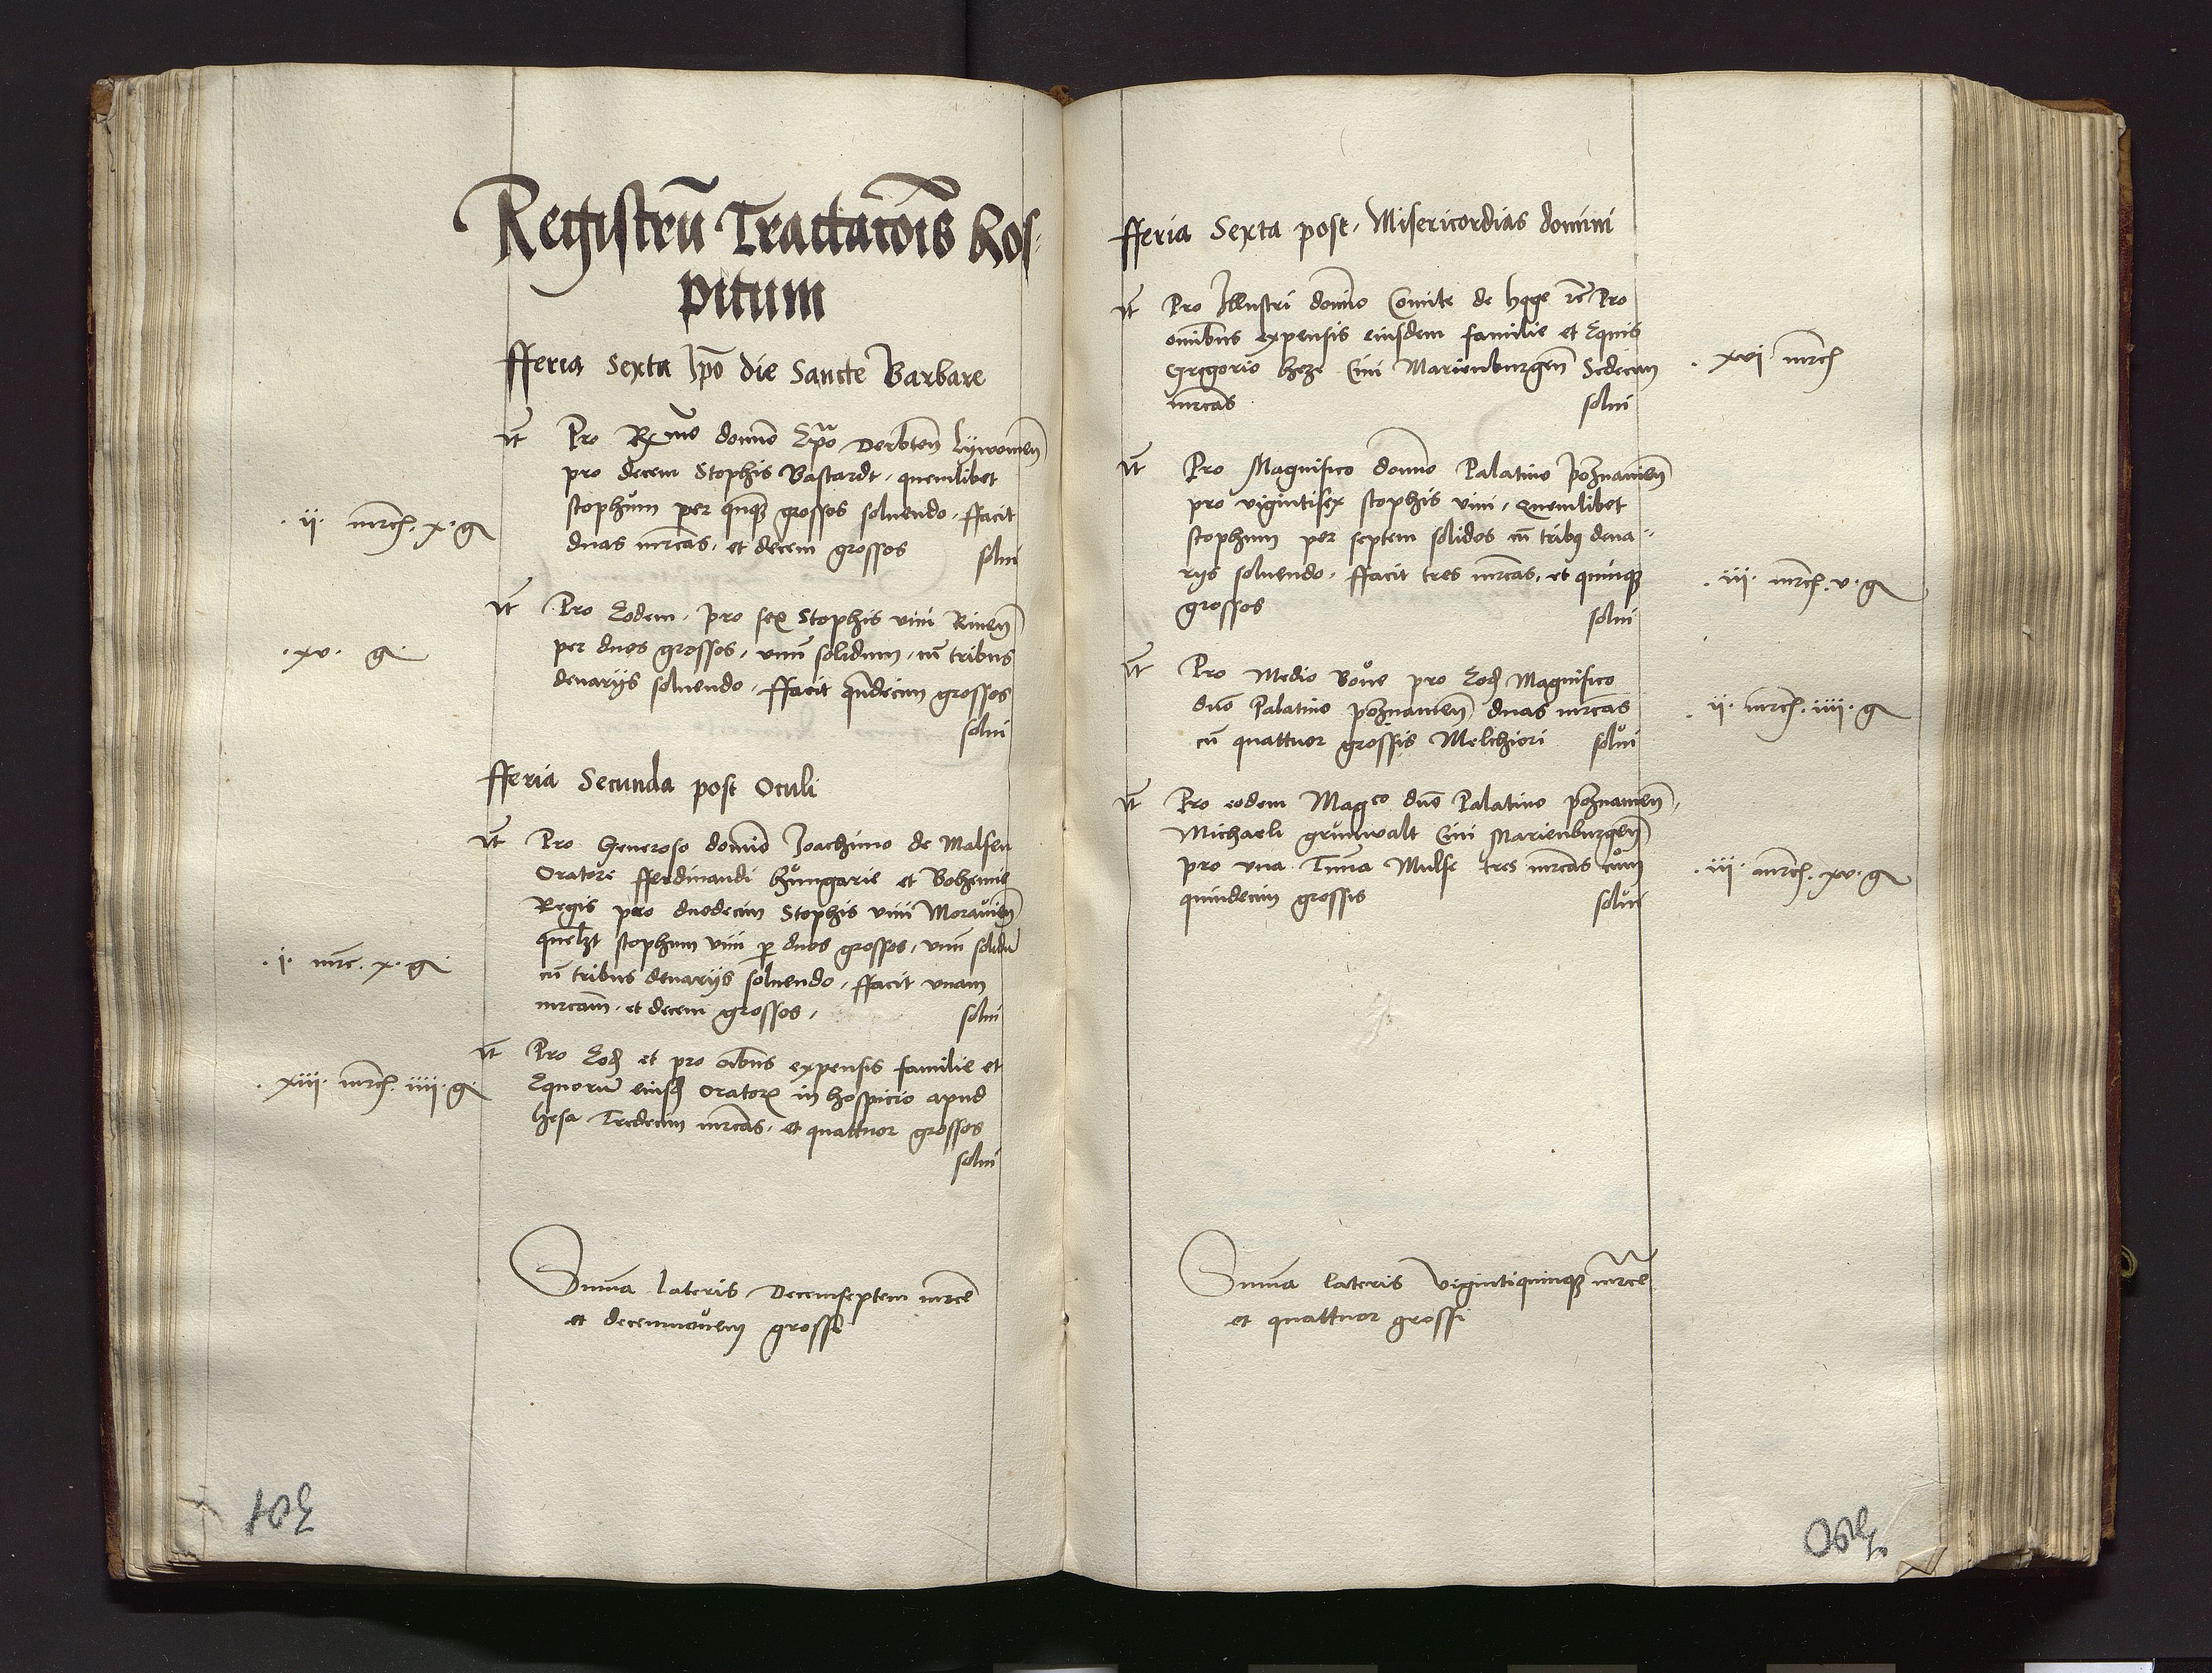 Registrū Tractatiōis hos-
pitum
fferia Sexta Ipō die Sancte Barbare
It Pro R͞mo domīo Ep̄o Derbten̄ Lywonien̄
pro decem Stophis Bastardt, quemlibet
.ii. mrc̄. x. g stophum per qn̄qz grossos soluendo, ffacit
duas mrcas, et decem grossos solui
It Pro Eodem, pro sex Stophis vini Rinen̄
.xv. g. per duos grossos, vnū solidum, cū tribus
denarijs soluendo, ffacit qn̄decim grossos
solui
fferia Secunda post Oculi
It Pro Generoso domīo Joachimo de Malsen
Oratore fferdinandi hungarie et Bohemie
Regis pro duodecim Stophis vini Morauien̄
quēlzt stophum vini p duos grossos, vnū solidū
.i. mrc. x. g. cū tribus denarijs soluendo, ffacit vnam
mrcam, et decem grossos, solui
It Pro Eod et pro oībus expensis familie et
.xiii. mrc̄. iiii. g. Equorū eiusd Orator in hospicio apud
hesa Tredecim mrcas, et quattuor grossos
solui
Sum̄a lateris Decemseptem mrce
et decemnouem grossi
301
fferia Sexta post, Misericordias domini
It Pro Illustri domīo Comite de pro
omībus expensis eiusdem familie et Equis
Gregorio heze Ciui Marienburgen̄ Sedecim .xvi mrc̄
mrcas solui
It Pro Magnifico domīo Palatino poznanien̄
pro vigintisex stophis vini, Quemlibet
stophum per septem solidos cū tribꝯ dena-
rijs soluendo, ffacit tres mrcas, et quinqz .iii. mrc̄. v. g
grossos solui
It Pro Medio Boue pro Eod Magnifico
dn̄o Palatino poznanien̄ duas mrcas .ii. mrc̄. iiii. g
cū quattuor grossis Melchiori solui
It Pro eodem Magco dn̄o Palatino poznanien̄,
Michaeli grunwalt Ciui Marienburgen̄
pro vna Tun̄a Mulse tres mrcas cum .iii. mrc̄. xv. g
quindecim grossis solui
Sum̄a lateris vigintiquinqz mrce
et quattuor grossi